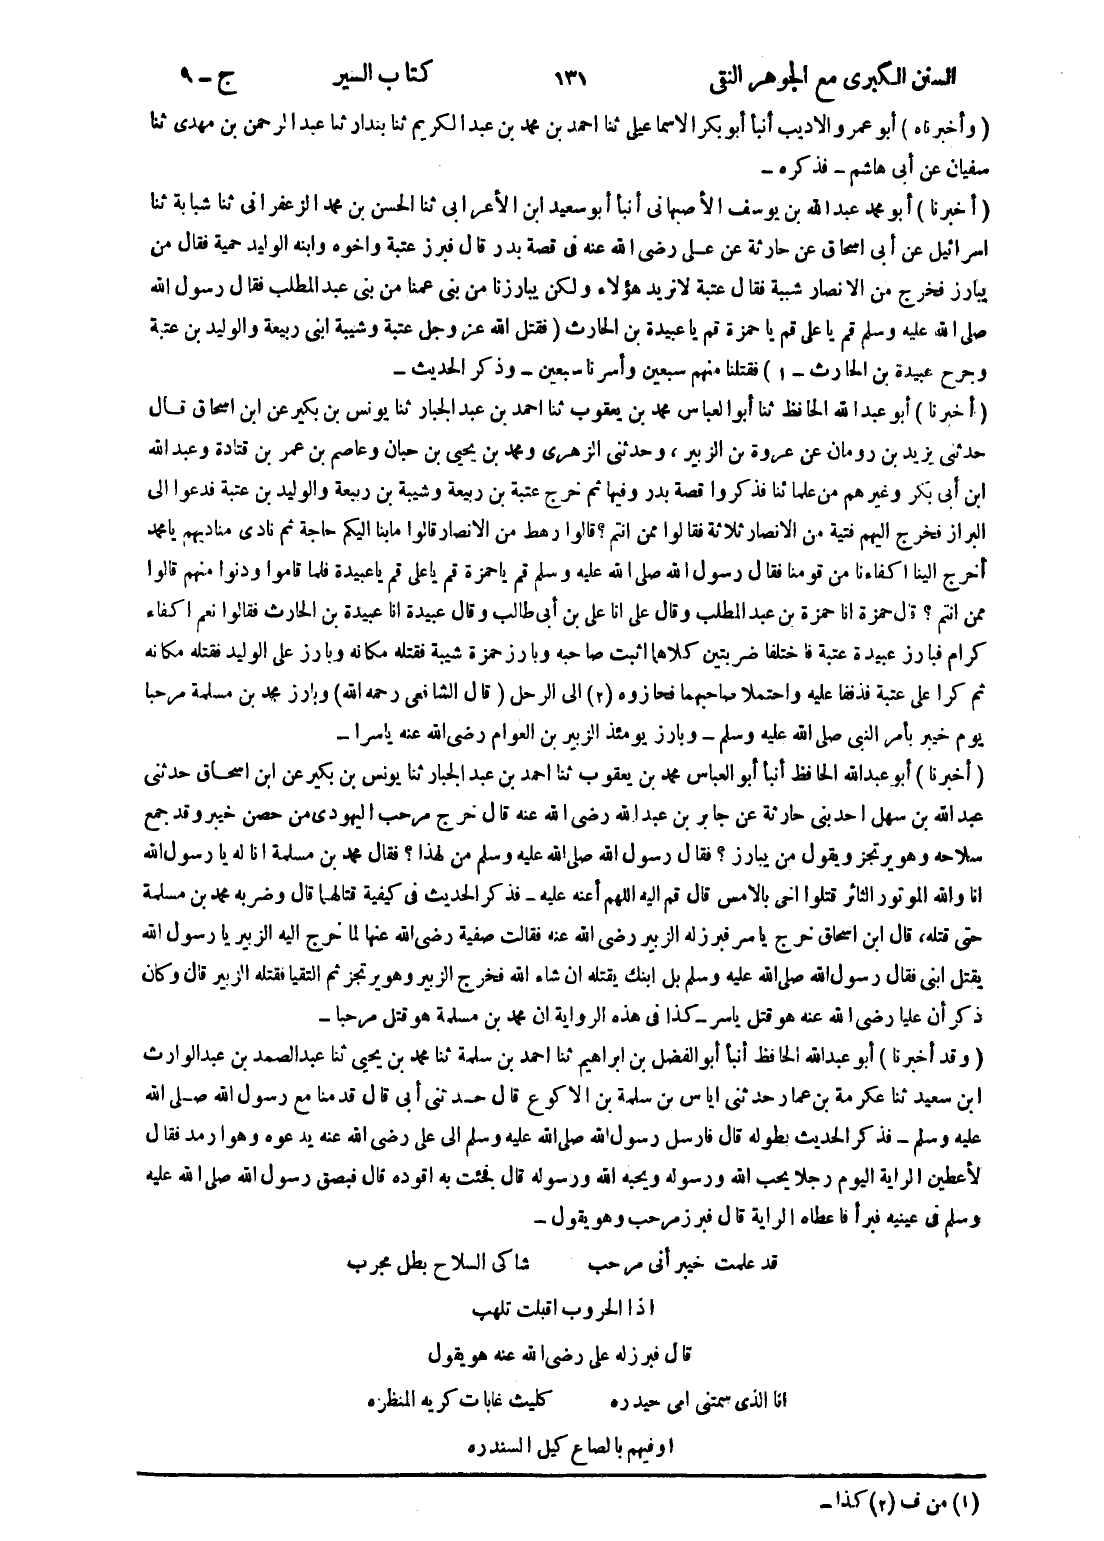 السنن الكبرى مع الجوهر النقى ١٣١ كتاب السير ج - ٩
( وأخبرناه ) أبو عمرو الاديب أنبأ أبو بكر الاسماعيلى ثنا احمد بن محمد بن عبد الكريم ثنا بندار ثنا عبد الرحمن بن مهدى ثنا
سفيان عن أبى هاشم - فذكره -
( أخبرنا ) أبو محمد عبد الله بن يوسف الأصبهانى أنبأ أبو سعيد ابن الأعرابى ثنا الحسن بن محمد الزعفرانى ثنا شبابة ثنا
اسرائيل عن أبى اسحاق عن حارثة عن على رضى الله عنه فى قصة بدر قال فبرز عتبة واخوه وابنه الوليد حمية فقال من
يبارز فخرج من الانصار شببة فقال عتبة لا نريد هؤلاء ولكن يبارزنا من بنى عمنا من بنى عبد المطلب فقال رسول الله
صلى الله عليه وسلم قم يا على قم يا حمزة قم يا عبيدة بن الحارث ( فقتل الله عز وجل عتبة وشيبة ابنى ربيعة والوليد بن عتبة
وجرح عبيدة بن الحارث - ١ ) فقتلنا منهم سبعين وأسرنا سبعين - وذكر الحديث -
( أخبرنا ) أبو عبد الله الحافظ ثنا أبو العباس محمد بن يعقوب ثنا احمد بن عبد الجبار ثنا يونس بن بكير عن ابن اسحاق قال
حدثنى يزيد بن رومان عن عروة بن الزبير ، وحدثنى الزهرى ومحمد بن يحيى بن حبان وعاصم بن عمر بن قتادة وعبد الله
ابن أبى بكر وغيرهم من علمائنا فذكروا قصة بدر وفيها ثم خرج عتبة بن ربيعة وشيبة بن ربيعة والوليد بن عتبة فدعوا الى
البراز فخرج اليهم فتية من الانصار ثلاثة فقالوا ممن انتم ؟ قالوا رهط من الانصار قالوا ما بنا اليكم حاجة ثم نادى مناديهم يا محمد
أخرج الينا اكفاءنا من قومنا فقال رسول الله صلى الله عليه وسلم قم يا حمزة قم يا على قم يا عبيدة فلما قاموا ودنوا منهم قالوا
ممن انتم ؟ قال حمزة انا حمزة بن عبد المطلب وقال على انا على بن أبى طالب وقال عبيدة انا عبيدة بن الحارث فقالوا نعم اكفاء
كرام فبارز عبيدة عتبة فاختلفا ضربتين كلاهما اثبت صاحبه وبارز حمزة شيبة فقتله مكانه وبارز على الوليد فقتله مكانه
ثم كرا على عتبة فذففا عليه واحتملا صاحبهما فحازوه (٢) الى الرحل ( قال الشافعى رحمه الله ) وبارز محمد بن مسلمة مرحبا
يوم خيبر بأمر النبى صلى الله عليه وسلم - وبارز يومئذ الزبير بن العوام رضى الله عنه ياسرا -
( أخبرنا ) أبو عبد الله الحافظ أنبأ أبو العباس محمد بن يعقوب ثنا احمد بن عبد الجبار ثنا يونس بن بكير عن ابن اسحاق حدثنى
عبد الله بن سهل احد بنى حارثة عن جابر بن عبد الله رضى الله عنه قال خرج مرحب اليهودى من حصن خيبر وقد جمع
سلاحه وهو يرتجز ويقول من يبارز ؟ فقال رسول الله صلى الله عليه وسلم من لهذا ؟ فقال محمد بن مسلمة انا له يا رسول الله
انا والله الموتور الثائر قتلوا اخى بالامس قال قم اليه اللهم أعنه عليه - فذكر الحديث فى كيفية قتالهما قال وضربه محمد بن مسلمة
حتى قتله، قال ابن اسحاق خرج ياسر فبرز له الزبير رضى الله عنه فقالت صفية رضى الله عنها لما خرج اليه الزبير يا رسول الله
يقتل ابنى فقال رسول الله صلى الله عليه وسلم بل ابنك يقتله ان شاء الله فخرج الزبير وهو يرتجز ثم التقيا فقتله الزبير قال وكان
ذكر أن عليا رضى الله عنه هو قتل ياسر - كذا فى هذه الرواية ان محمد بن مسلمة هو قتل مرحبا -
( وقد أخبرنا ) أبو عبد الله الحافظ أنبأ أبو الفضل بن ابراهيم ثنا احمد بن سلمة ثنا محمد بن يحيى ثنا عبد الصمد بن عبد الوارث
ابن سعيد ثنا عكرمة بن عمار حدثنى اياس بن سلمة بن الاكوع قال حدثنى أبى قال قدمنا مع رسول الله صلى الله
عليه وسلم - فذكر الحديث بطوله قال فارسل رسول الله صلى الله عليه وسلم الى على رضى الله عنه يدعوه وهو ارمد فقال
لأعطين الراية اليوم رجلا يحب الله ورسوله ويحبه الله ورسوله قال فجئت به اقوده قال فبصق رسول الله صلى الله عليه
وسلم فى عينيه فبرأ فاعطاه الراية قال فبرز مرحب وهو يقول -
قد علمت خيبر أنى مرحب شاكى السلاح بطل مجرب
اذا الحروب اقبلت تلهب
قال فبرز له على رضى الله عنه هو يقول
انا الذى سمتنى امى حيدره كليث غابات كريه المنظره
اوفيهم بالصاع كيل السندره
(١) من ف (٢) كذا -